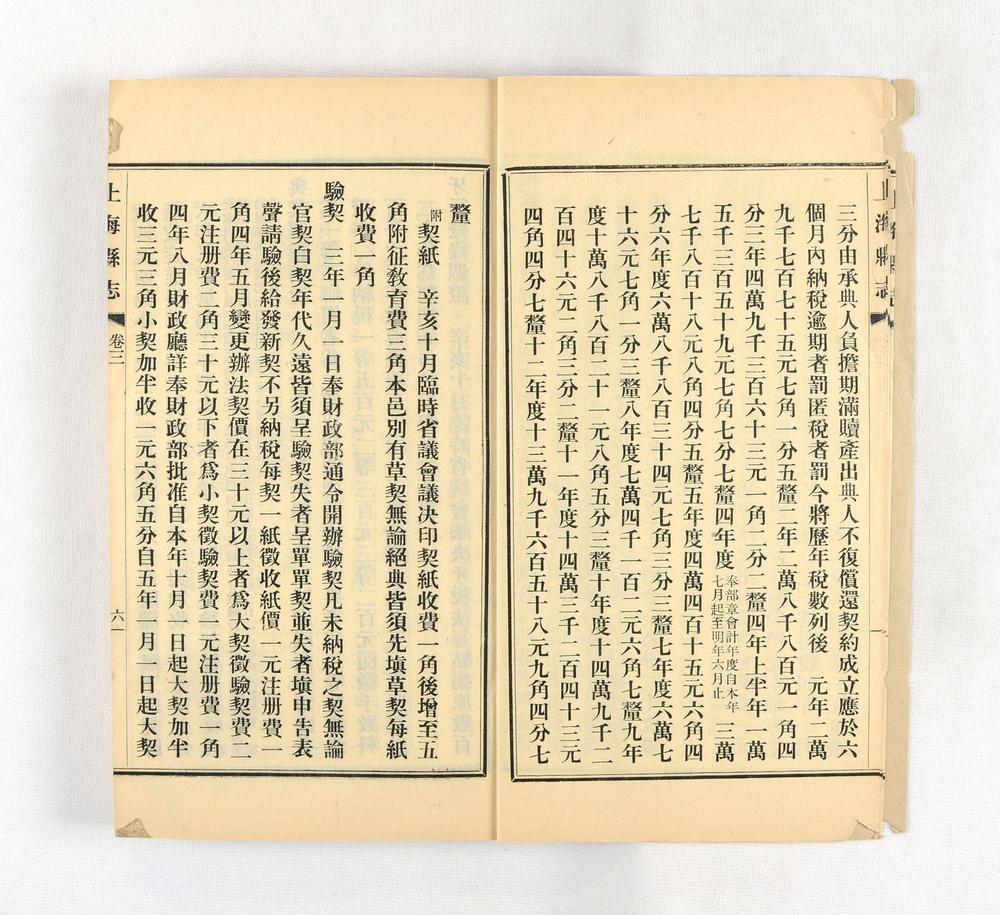 三分由承典人負擔期滿贖產出典人不復償還契約成立應於六
個月內納稅逾期者罰匿稅者罰今將歷年稅數列後　元年二萬
九千七百七十五元七角一分五釐二年二萬八千八百元一角四
分三年四萬九千三百六十三元一角二分二釐四年上半年一萬
五千三百五十九元七角七分七釐四年度奉部章會計年度自本年七月起至明年六月止三萬
七千八百十八元八角四分五釐五年度四萬四百十五元六角四
分六年度六萬八千八百三十四元七角三分三釐七年度六萬七
十六元七角一分三釐八年度七萬四千一百二元六角七釐九年
度十萬八千八百二十一元八角五分三釐十年度十四萬九千二
百四十六元二角三分二釐十一年度十四萬三千二百四十三元
四角四分七釐十二年度十三萬九千六百五十八元九角四分七
上海縣志
釐
附契紙　辛亥十月臨時省議會議決印契紙收費一角後增至五
角附征教育費三角本邑別有草契無論絕典皆須先塡草契每紙
收費一角
驗契　三年一月一日奉財政部通令開辦驗契凡未納稅之契無論
官契白契年代久遠皆須呈驗契失者呈單單契並失者塡申告表
聲請驗後給發新契不另納稅每契一紙徵收紙價一元注册費一
角四年五月變更辦法契價在三十元以上者爲大契徵驗契費二
元注册費二角三十元以下者爲小契徵驗契費一元注册費一角
四年八月財政廳詳奉財政部批准自本年十月一日起大契加半
收三元三角小契加半收一元六角五分自五年一月一日起大契
上海縣志
卷三
六